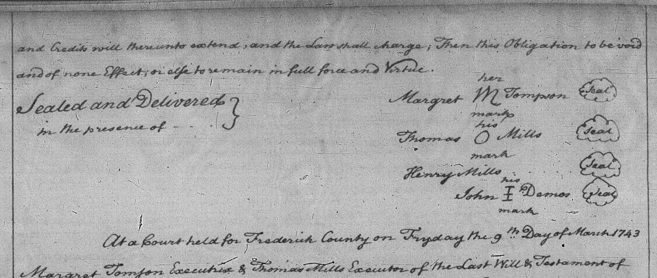 and Credits will thereunto extend, and the Law shall charge, Then this Obligation to be void
and of none Effect, or else to remain in full force and Virtue.
Sealed and Delivered }
in the presence of
her
Margret M Tompson Seal
mark
his
Thomas O Mills Seal
mark
Henry Mills Seal
his
John I Demos Seal
mark
At a Court held for Frederick County on Fryday the 9th Day of March 1743
Margaret Tompson Executrix & Thomas Mills Executor of the Last Will & Testament of